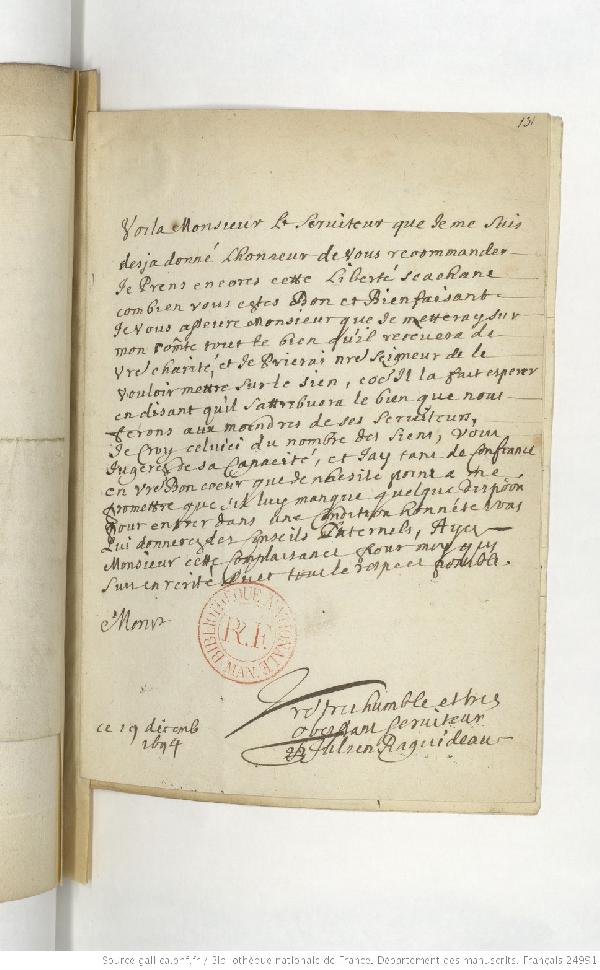 131
Voila Monsieur Le Seruiteur que Je me suis
desja donné Lhonneur de Vous recommander
Je Prens encores cette Liberté scachant
combien vous estes Bon et Bienfaisant
Je Vous asseure Monsieur que Je metteray sur
mon cõte tout le bien qu'il receuera de
Vre charité, et Je Prierai nre Seigneur de le
vouloir mettre sur le sien, cõe Il la fait esperer
en disant qu'il sattribuera le bien que nous
ferons aux moindres de ses seruiteurs,
Je Croy celuici du nombre des siens, Vous
Jugerez de sa Capacité, et Jay tant de Confiance
en Vre Bon coeur que Je nhesite point a me
promettre que sil luy manque quelque disposõn
pour entrer dans une Condition honneste vous
Lui donnerez des Conseils Paternels, Ayez
Monsieur cette Complaisance pour moy qui
suis en verité et tout le respect possible.
Monsr
BIBLIOTHÈQUE NATIONALE MAN.
R.F.
vre tres humble et tres
obeissant seruiteur
Julien Raguideau
ce 19 decemb
1694
Source gallica.bnf.fr / Bibliothèque nationale de France. Département des manuscrits. Français 24991